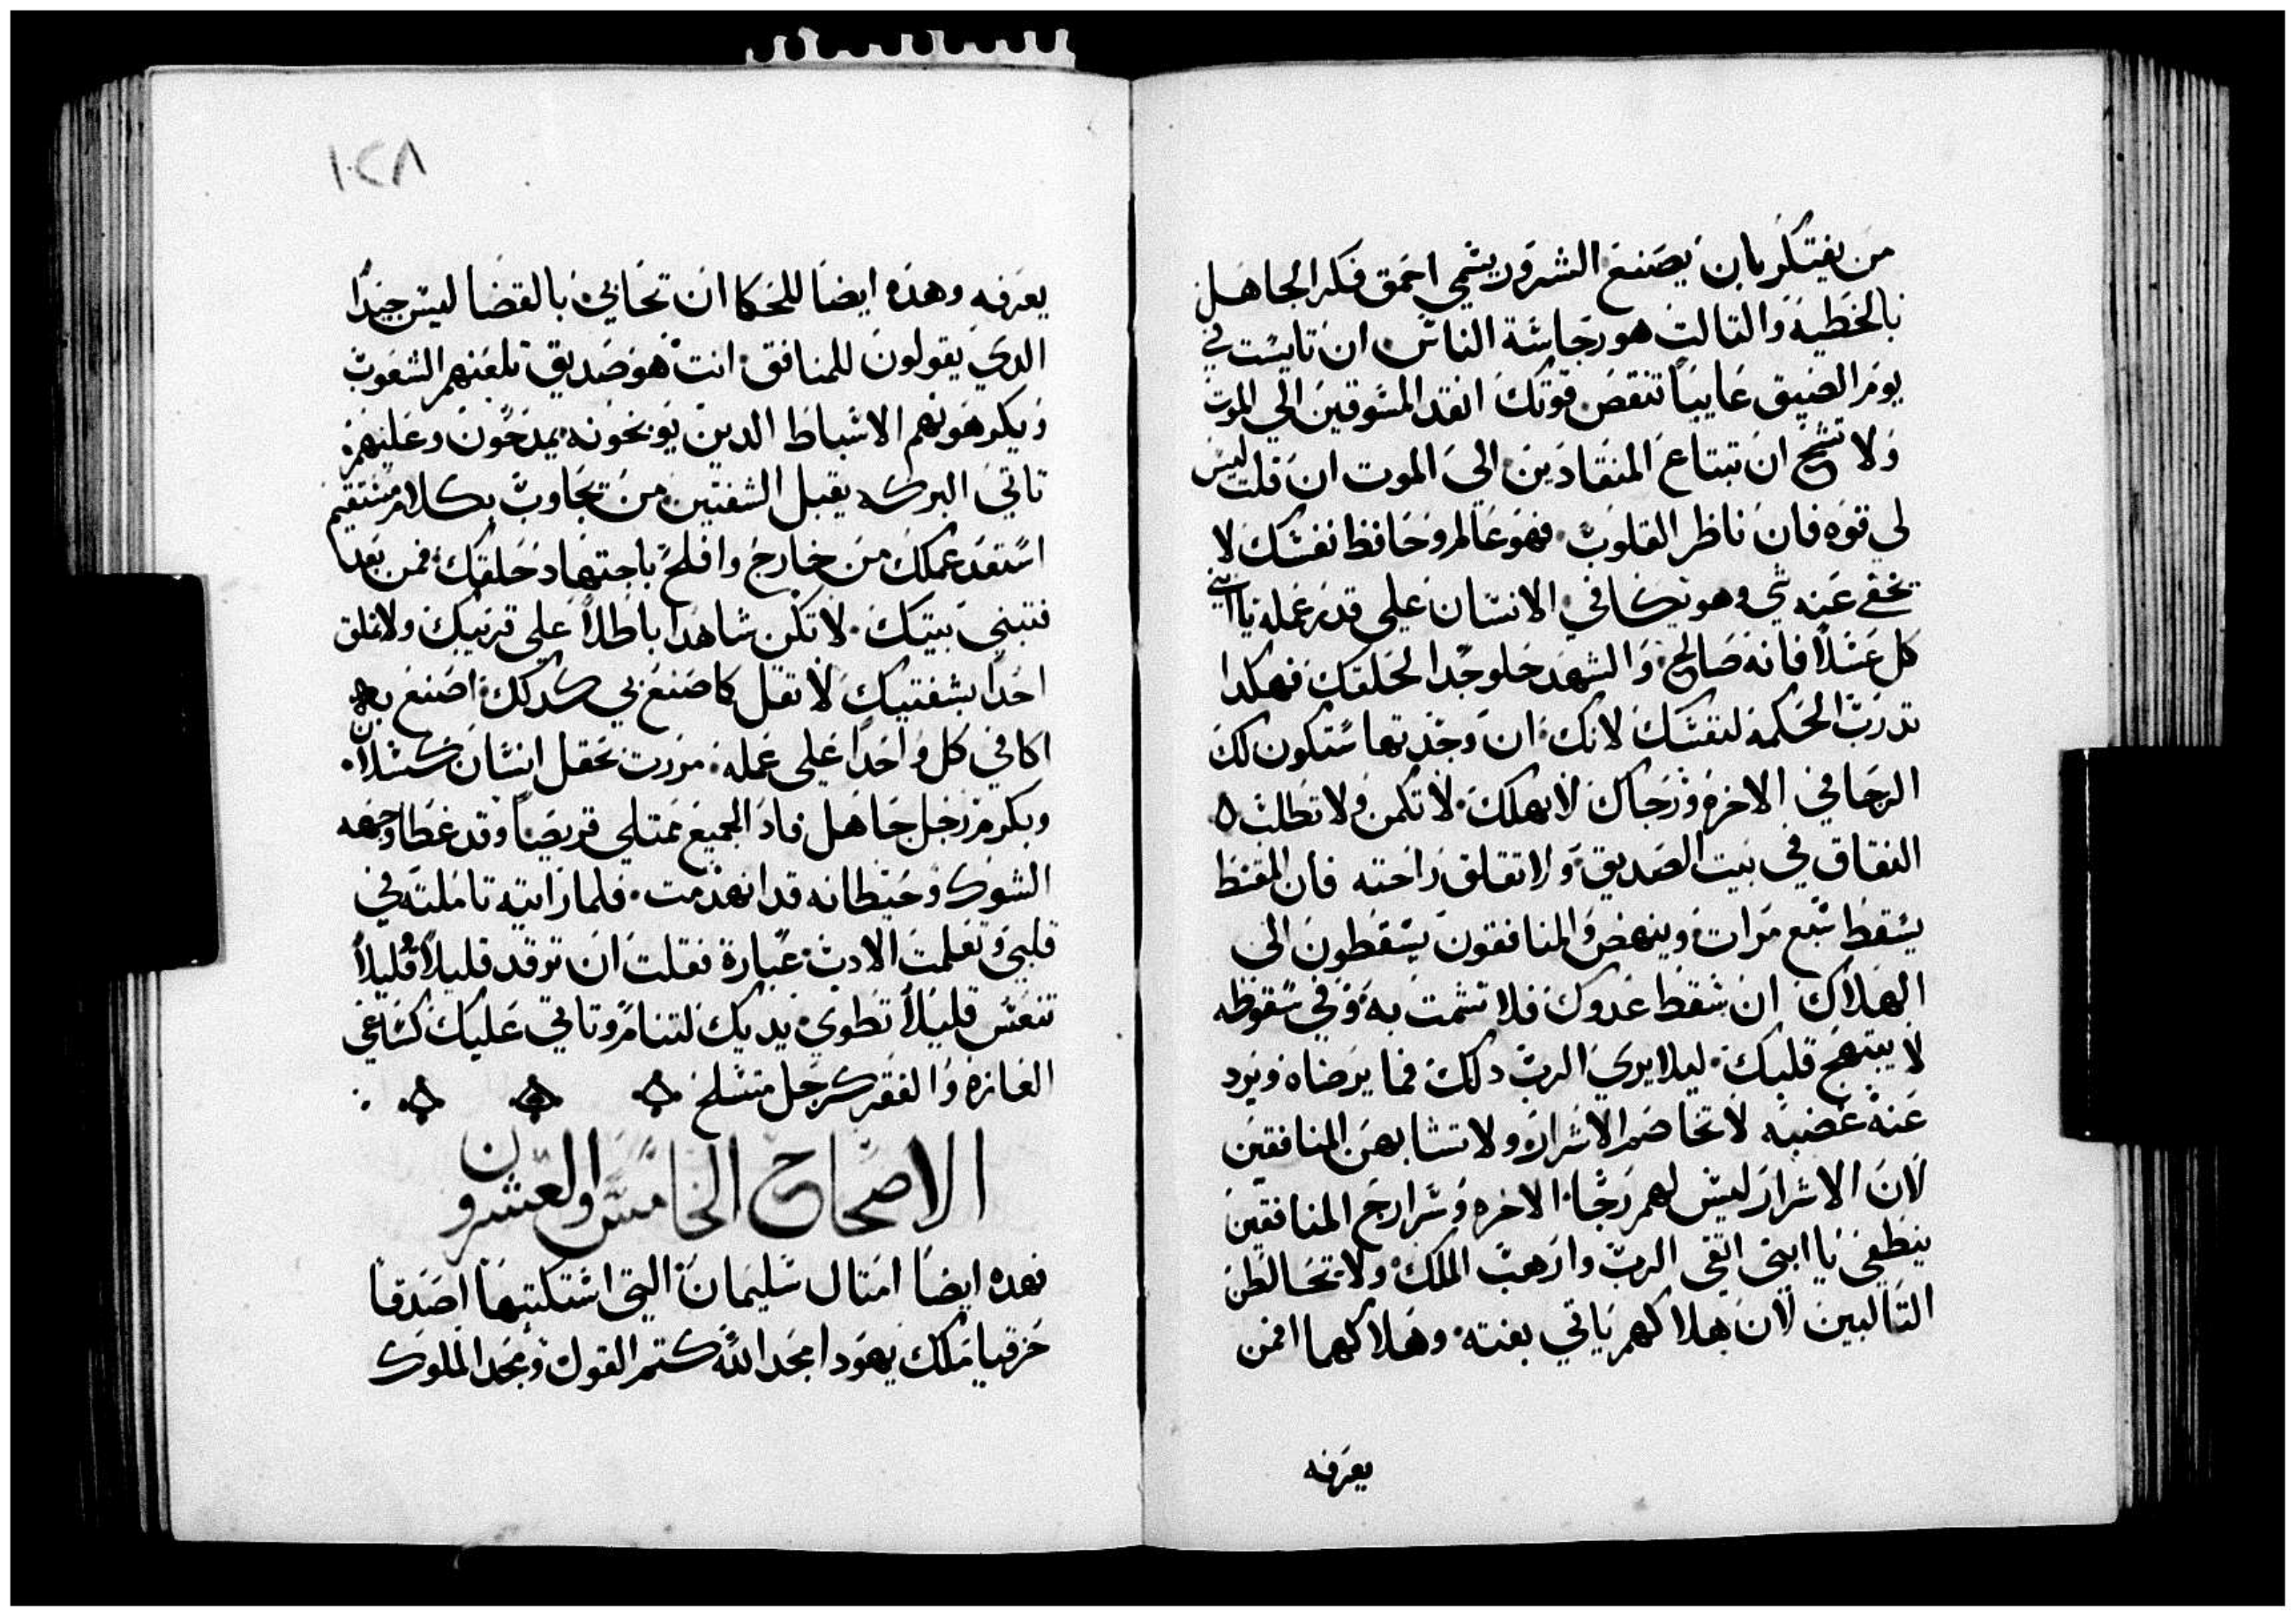 من يفتكر بان يصنع الشرور يسمي احمق فكر الجاهل
بالخطيه والتالت هو رجاسة الناس ان تايست في
يوم الضيق عاييا تنقص قوتك انقد المسوقين الي الموت
ولا تشح ان تبتاع المنقادين الي الموت ان قلت ليس
لي قوه فان ناظر القلوب فهو عالم وحافظ نفسك لا
يخفي عنه شي وهو يكافي الانسان علي قدر عمله يا ابني
كل عسلا فانه صالح والشهد حلو جدا لحلقك فهكدا
تدرب الحكمه لنفسك لانك ان وجدتها ستكون لك
الرجا في الاخره ورجاك لا يهلك لا تكمن ولا تطلب
النفاق في بيت الصديق ولا تقلق راحته فان المقسط
يسقط سبع مرات وينهض والمنافقون يسقطون الى
الهلاك ان سقط عدوك فلا تشمت به وفي سقوطه
لا يبتهج قلبك ليلا يري الرب دلك فما يرضاه ويرد
عنه غضبه لا تخاصم الاشرار ولا تتشابهن المنافقين
لان الاشرار ليس لهم رجا الاخره وسرارج المنافقين
ينطفي يا ابني اتقى الرب وارهب الملك ولا تخالطن
التالبين لان هلاكهم ياتي بغته وهلاكهما افمن
يعرفه
١٠٢٨
يعرفه وهده ايضا للحكا ان تحابي بالقضا ليس جيدا
الدي يقولون للمنافق انت هو صديق تلعنهم الشعوب
ويكرهونهم الاسباط الدين يوبخونه يمدحون وعليهم
تاتي البركه يقبل الشفتين من يجاوب بكلام مستقيم
استعد عملك من خارج وافلح باجتهاد حلقك فمن بعد
فتبني بيتك لا تكن شاهدا باطلا علي قريبك ولا تملق
احدا بشفتيك لا تقل كما صنع بي كدلك اصنع به
اكافي كل واحدا علي عمله مررت بحقل انسان كسلان
وبكرم رجل جاهل فاد الجميع ممتلي قريصا وقد غطا وجهه
الشوك وحيطانه قد انهدمت فلما رايته تاملته في
قلبي وتعلمت الادب عبارة فقلت ان ترقد قليلا قليلا
تنعس قليلا تطوي يديك لتنام وتاتي عليك كساعي
الفاره والفقر كرجل متسلح
الاصحاح الخامس والعشرون
فهده ايضا امتال سليمان التي استكتبها اصدقا
حزقيا ملك يهودا مجد الله كتم القول ومجد الملوك